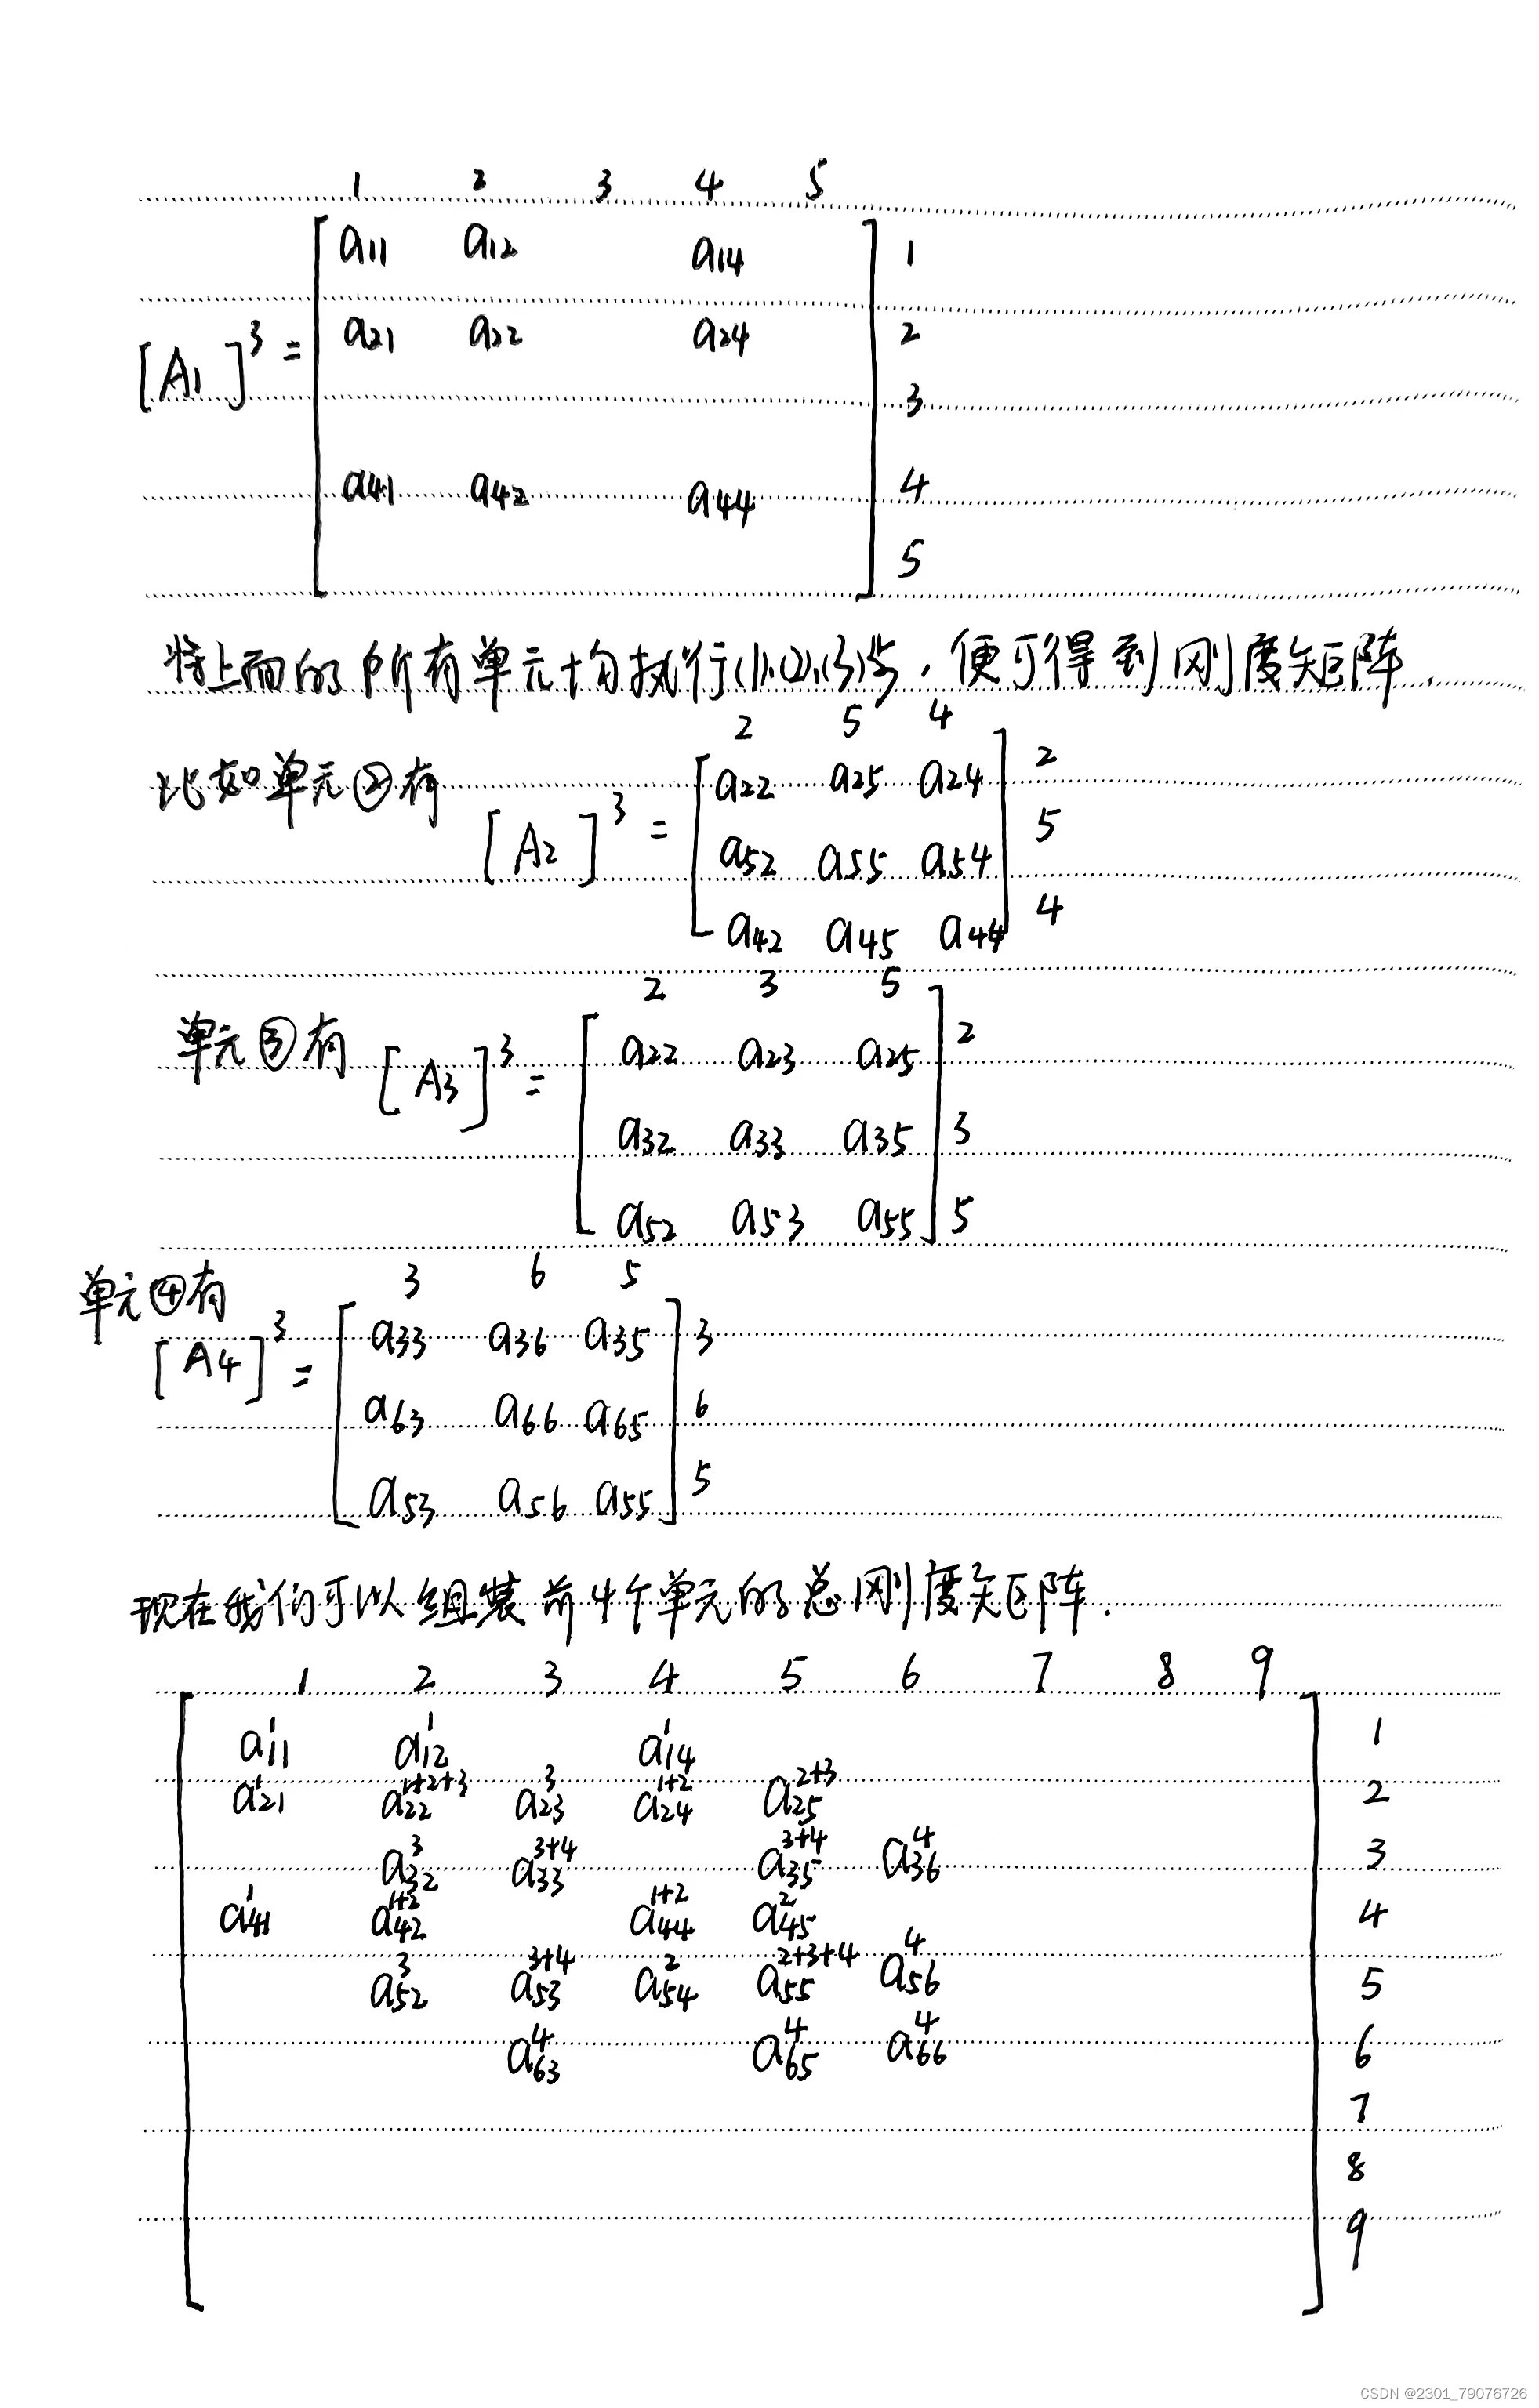 1 2 3 4 5
a11 a12 a14 1
a21 a22 a24 2
[A1]³ =
3
a41 a42 a44 4
5
将上面的所有单元均执行(1).(2).(3)步，便可得到刚度矩阵.
比如单元②有
2 5 4
[A2]³ =
a22 a25 a24 2
a52 a55 a54 5
a42 a45 a44 4
2 3 5
单元③有 [A3]³ =
a22 a23 a25 2
a32 a33 a35 3
a52 a53 a55 5
单元④有
3 6 5
[A4]³ =
a33 a36 a35 3
a63 a66 a65 6
a53 a56 a55 5
现在我们可以组装前4个单元的总刚度矩阵.
1 2 3 4 5 6 7 8 9
a11^1 a12^1 a14^1 1
a21^1 a22^1+2+3 a23^3 a24^1+2 a25^2+3 2
a32^3 a33^3+4 a35^3+4 a36^4 3
a41^1 a42^1+2 a44^1+2 a45^2 4
a52^3 a53^3+4 a54^2 a55^2+3+4 a56^4 5
a63^4 a65^4 a66^4 6
7
8
9
CSDN @2301_79076726